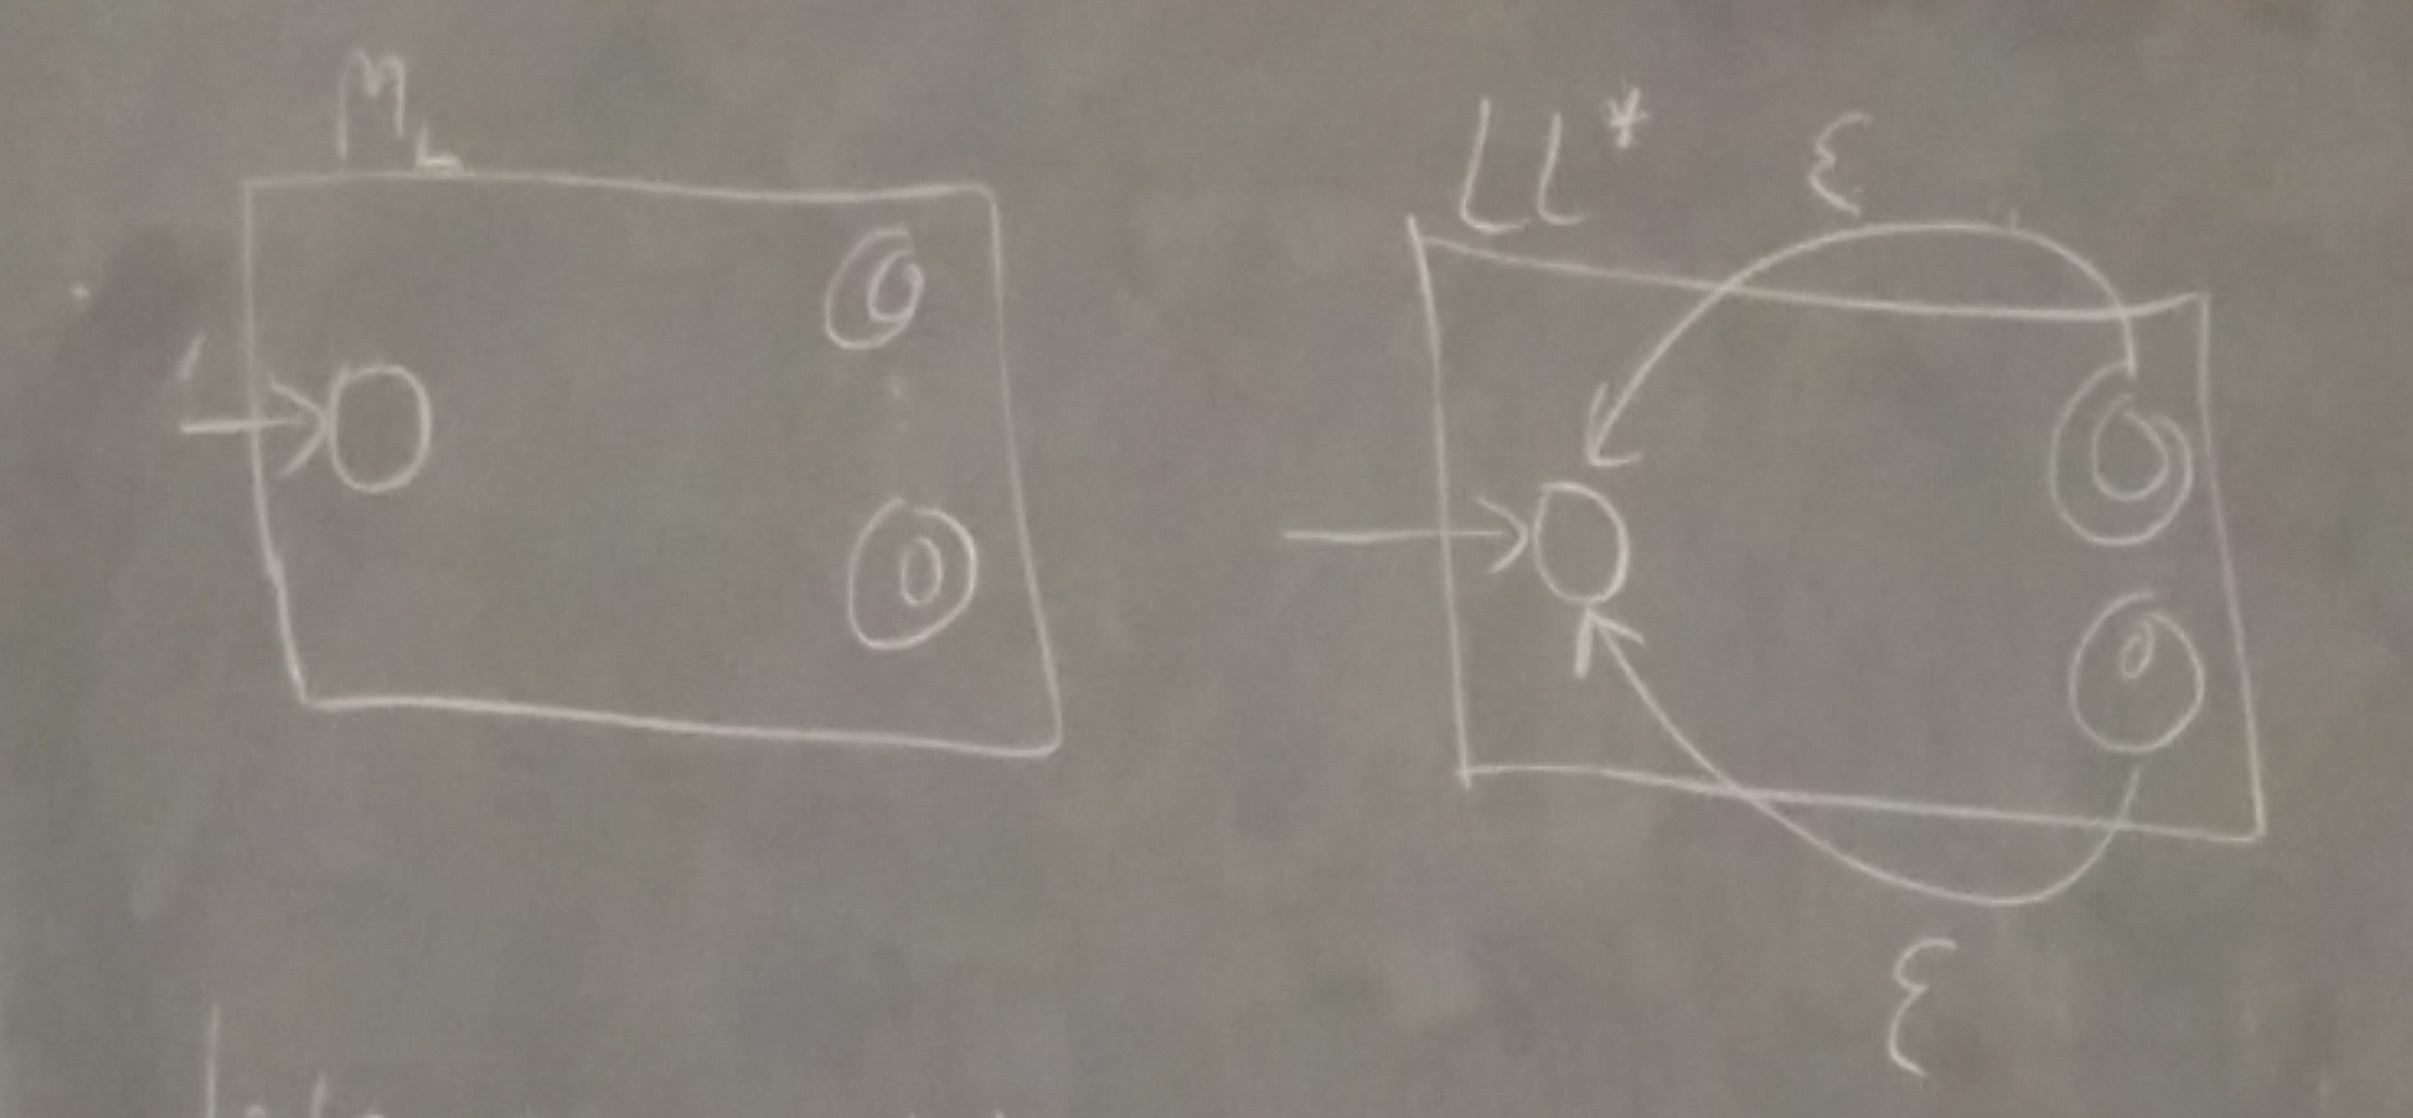 M_L
LL*
ε
ε